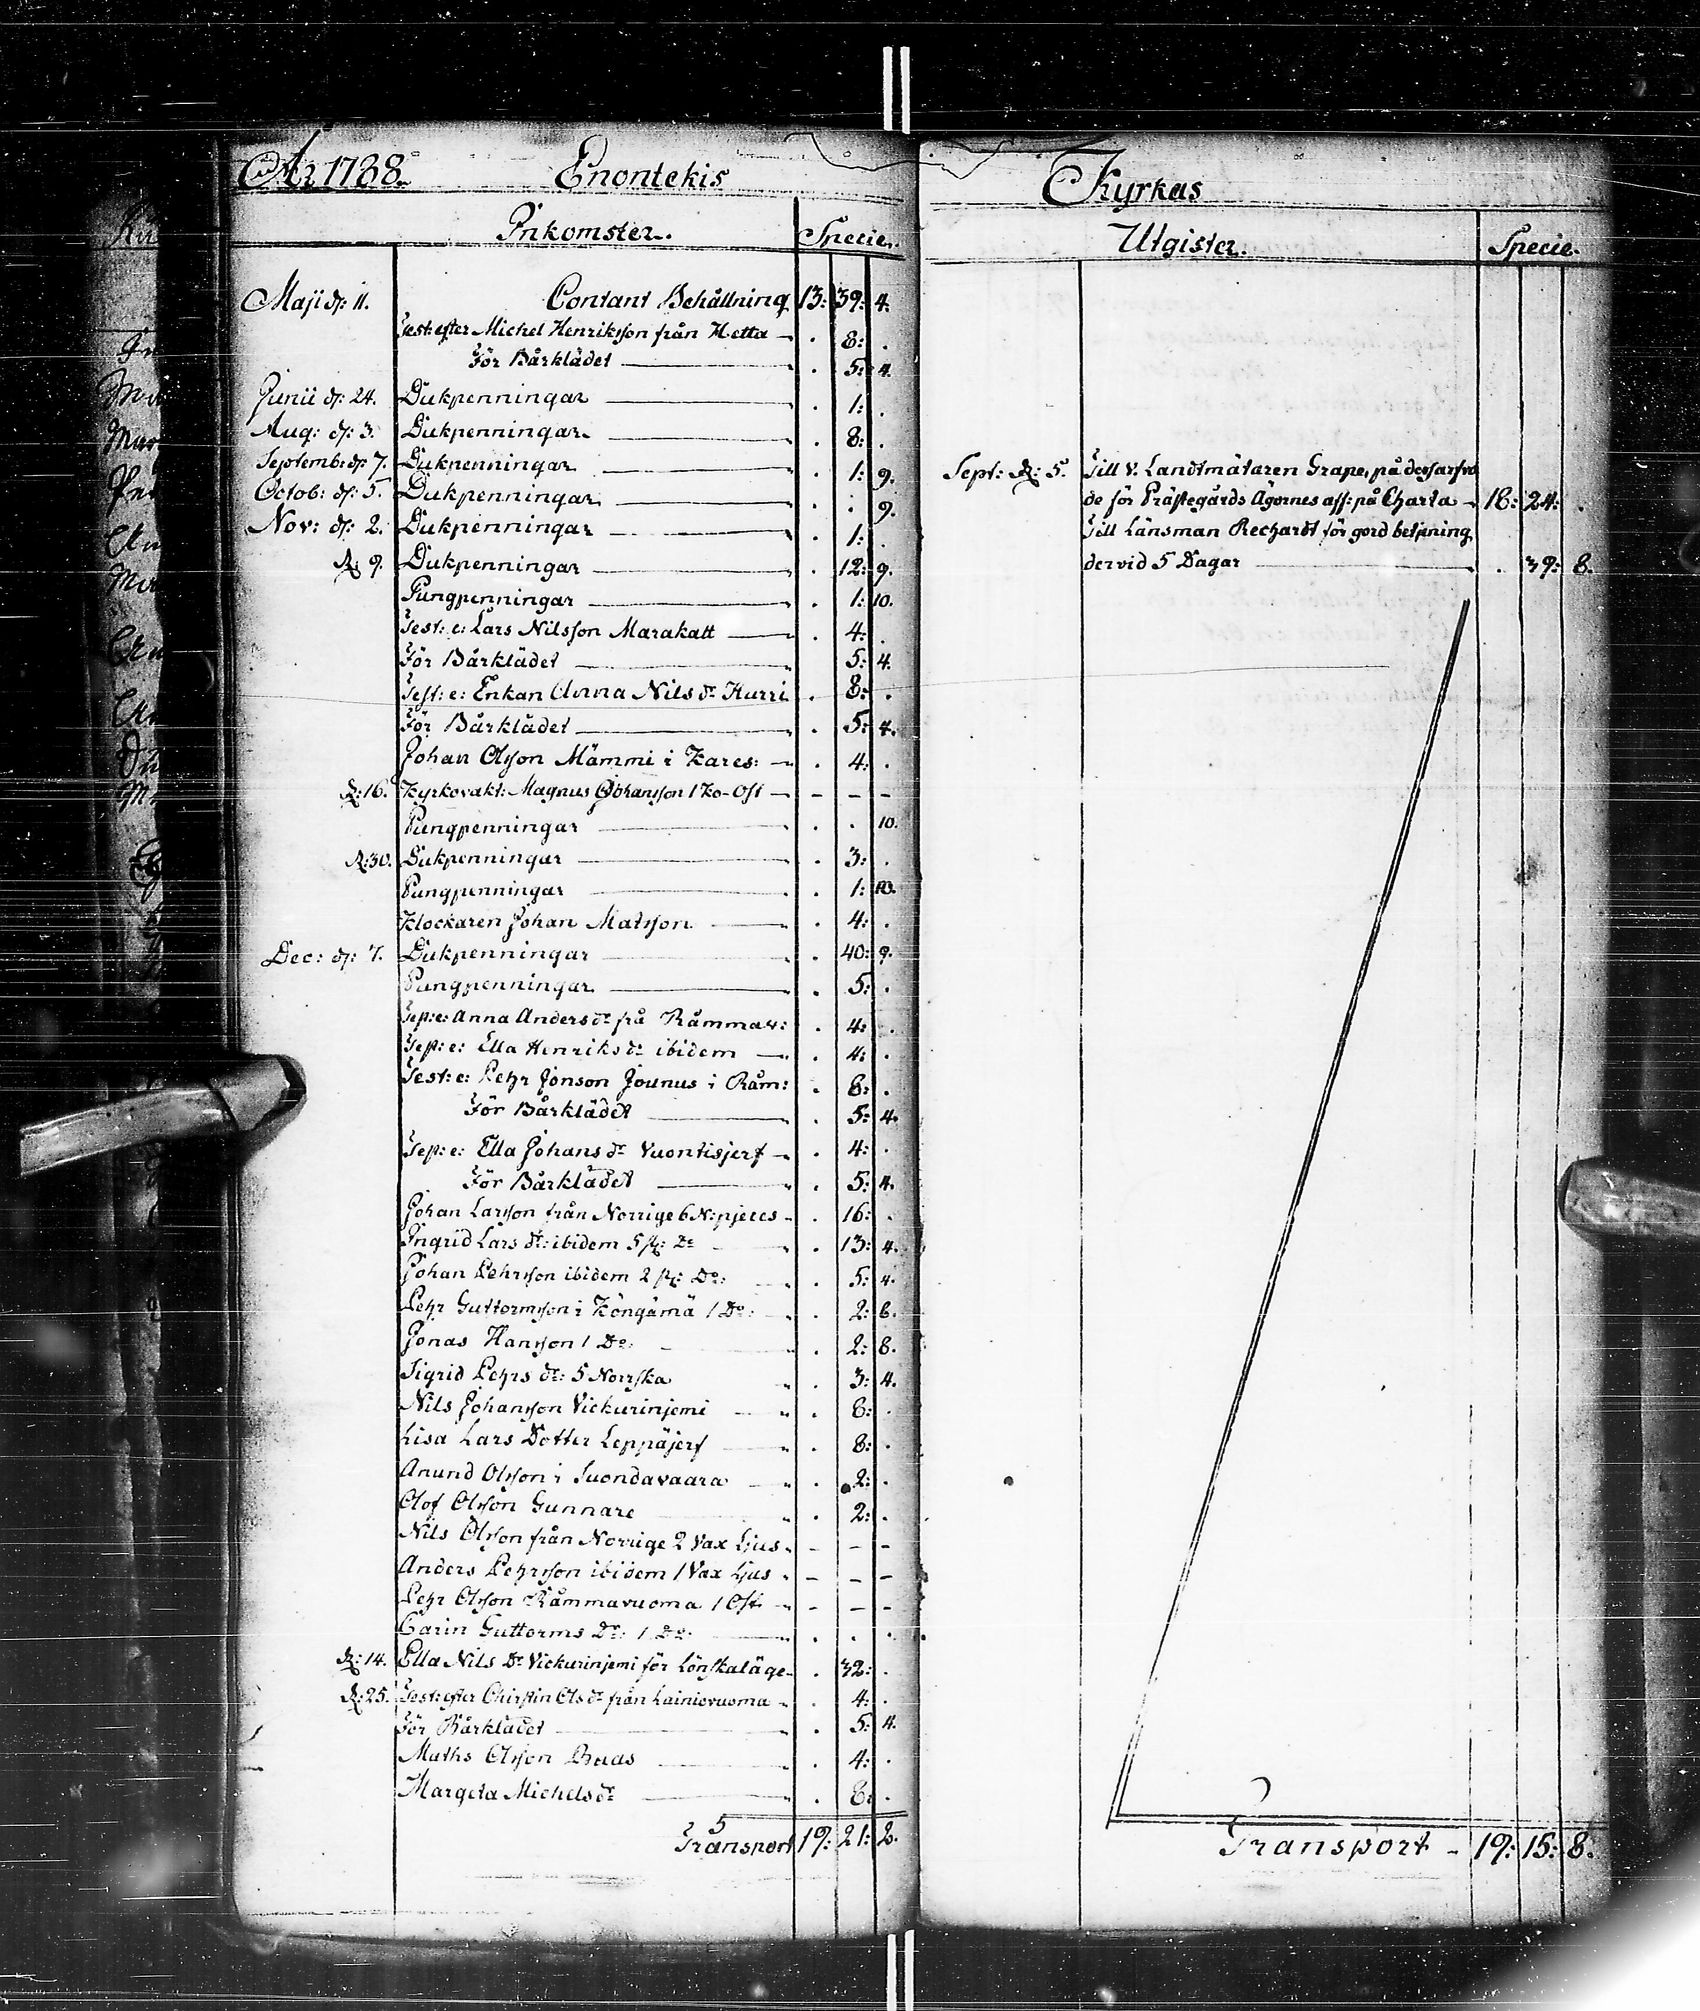 Åhr 1788. Enontekis
Inkomster. Specie.
Maji d: 11. Contant Behållning 13: 39: 4.
Test: efter Michel Henriksson från Hetta – . 8: .
För Bårklädet . 5: 4.
Junii d: 24. Dukpenningar . 1: .
Aug: d: 3. Dukpenningar . 8: .
Septemb: d: 7. Dukpenningar . 1: 9.
Octob: d: 5. Dukpenningar . . 9.
Nov: d: 2. Dukpenningar . 1: .
D: 9. Dukpenningar . 12: 9.
Pungpenningar . 1: 10.
Test: e: Lars Nilsson Marakatt . 4: .
För Bårklädet . 5: 4.
Test: e: Enkan Anna Nils dr Hurri . 8: .
För Bårklädet . 5: 4.
Johan Olsson Mämmi i Kares: – . 4: .
D: 16. Kyrkovakt: Magnus Johansson 1 Ko-Ost – – – –
Pungpenningar . . 10.
D: 30. Dukpenningar . 3: .
Pungpenningar . 1: 10.
Klockaren Johan Matsson . 4: .
Dec: d: 7. Dukpenningar . 40: 9.
Pungpenningar . 5: .
Test: e: Anna Anders dr frå Råmmav: . 4: .
Test: e: Ella Henriks dr ibidem . 4: .
Test: e: Pehr Jonson Jounus i Råm: . 8: .
För Bårklädet . 5: 4.
Test: e: Ella Johans dr Vuontisjerf – . 4: .
För Bårklädet . 5: 4.
Johan Larsson från Norrige 6 N: pjeces – . 16: .
Ingrid Lars dr: ibidem 5 st: Do . 13: 4.
Johan Pehrsson ibidem 2 st: Do: . 5: 4.
Pehr Guttormsson i Köngämä 1 Do: . 2: 8.
Jonas Hansson 1 Do: . 2: 8.
Sigrid Pehrs dr: 5 Norrska . 3: 4.
Nils Johansson Vickurinjemi . 8: .
Lisa Lars Dotter Leppäjerf . 8: .
Anund Olsson i Suondavaara . 2: .
Olof Olsson Gunnare . 2: .
Nils Olsson från Norrige 2 Vax Ljus – – – –
Anders Pehrsson ibidem 1 Vax Ljus – – – –
Pehr Olsson Råmmavuoma 1 Ost – – – –
Carin Guttorms Dr: 1 Do: . . .
D: 14. Ella Nils Dr Vickurinjemi för Lönskaläge – . 32: .
D: 25. Test: efter Chirstin Ols dr från Lainiovuoma – . 4: .
För Bårklädet . 5: 4.
Maths Olsson Baas . 4: .
Margeta Michels dr . 8: .
Transport 19: 21: 2.
Kyrkas
Utgifter. Specie.
Sept: D: 5. Till V. Landtmätaren Grape, på dess arfvo
de för Prästegårds Ägornes aff: på Charta – 18: 24: .
Till Länsman Rechardt för gord betjening
dervid 5 Dagar . 39: 8.
Transport – 19: 15: 8.